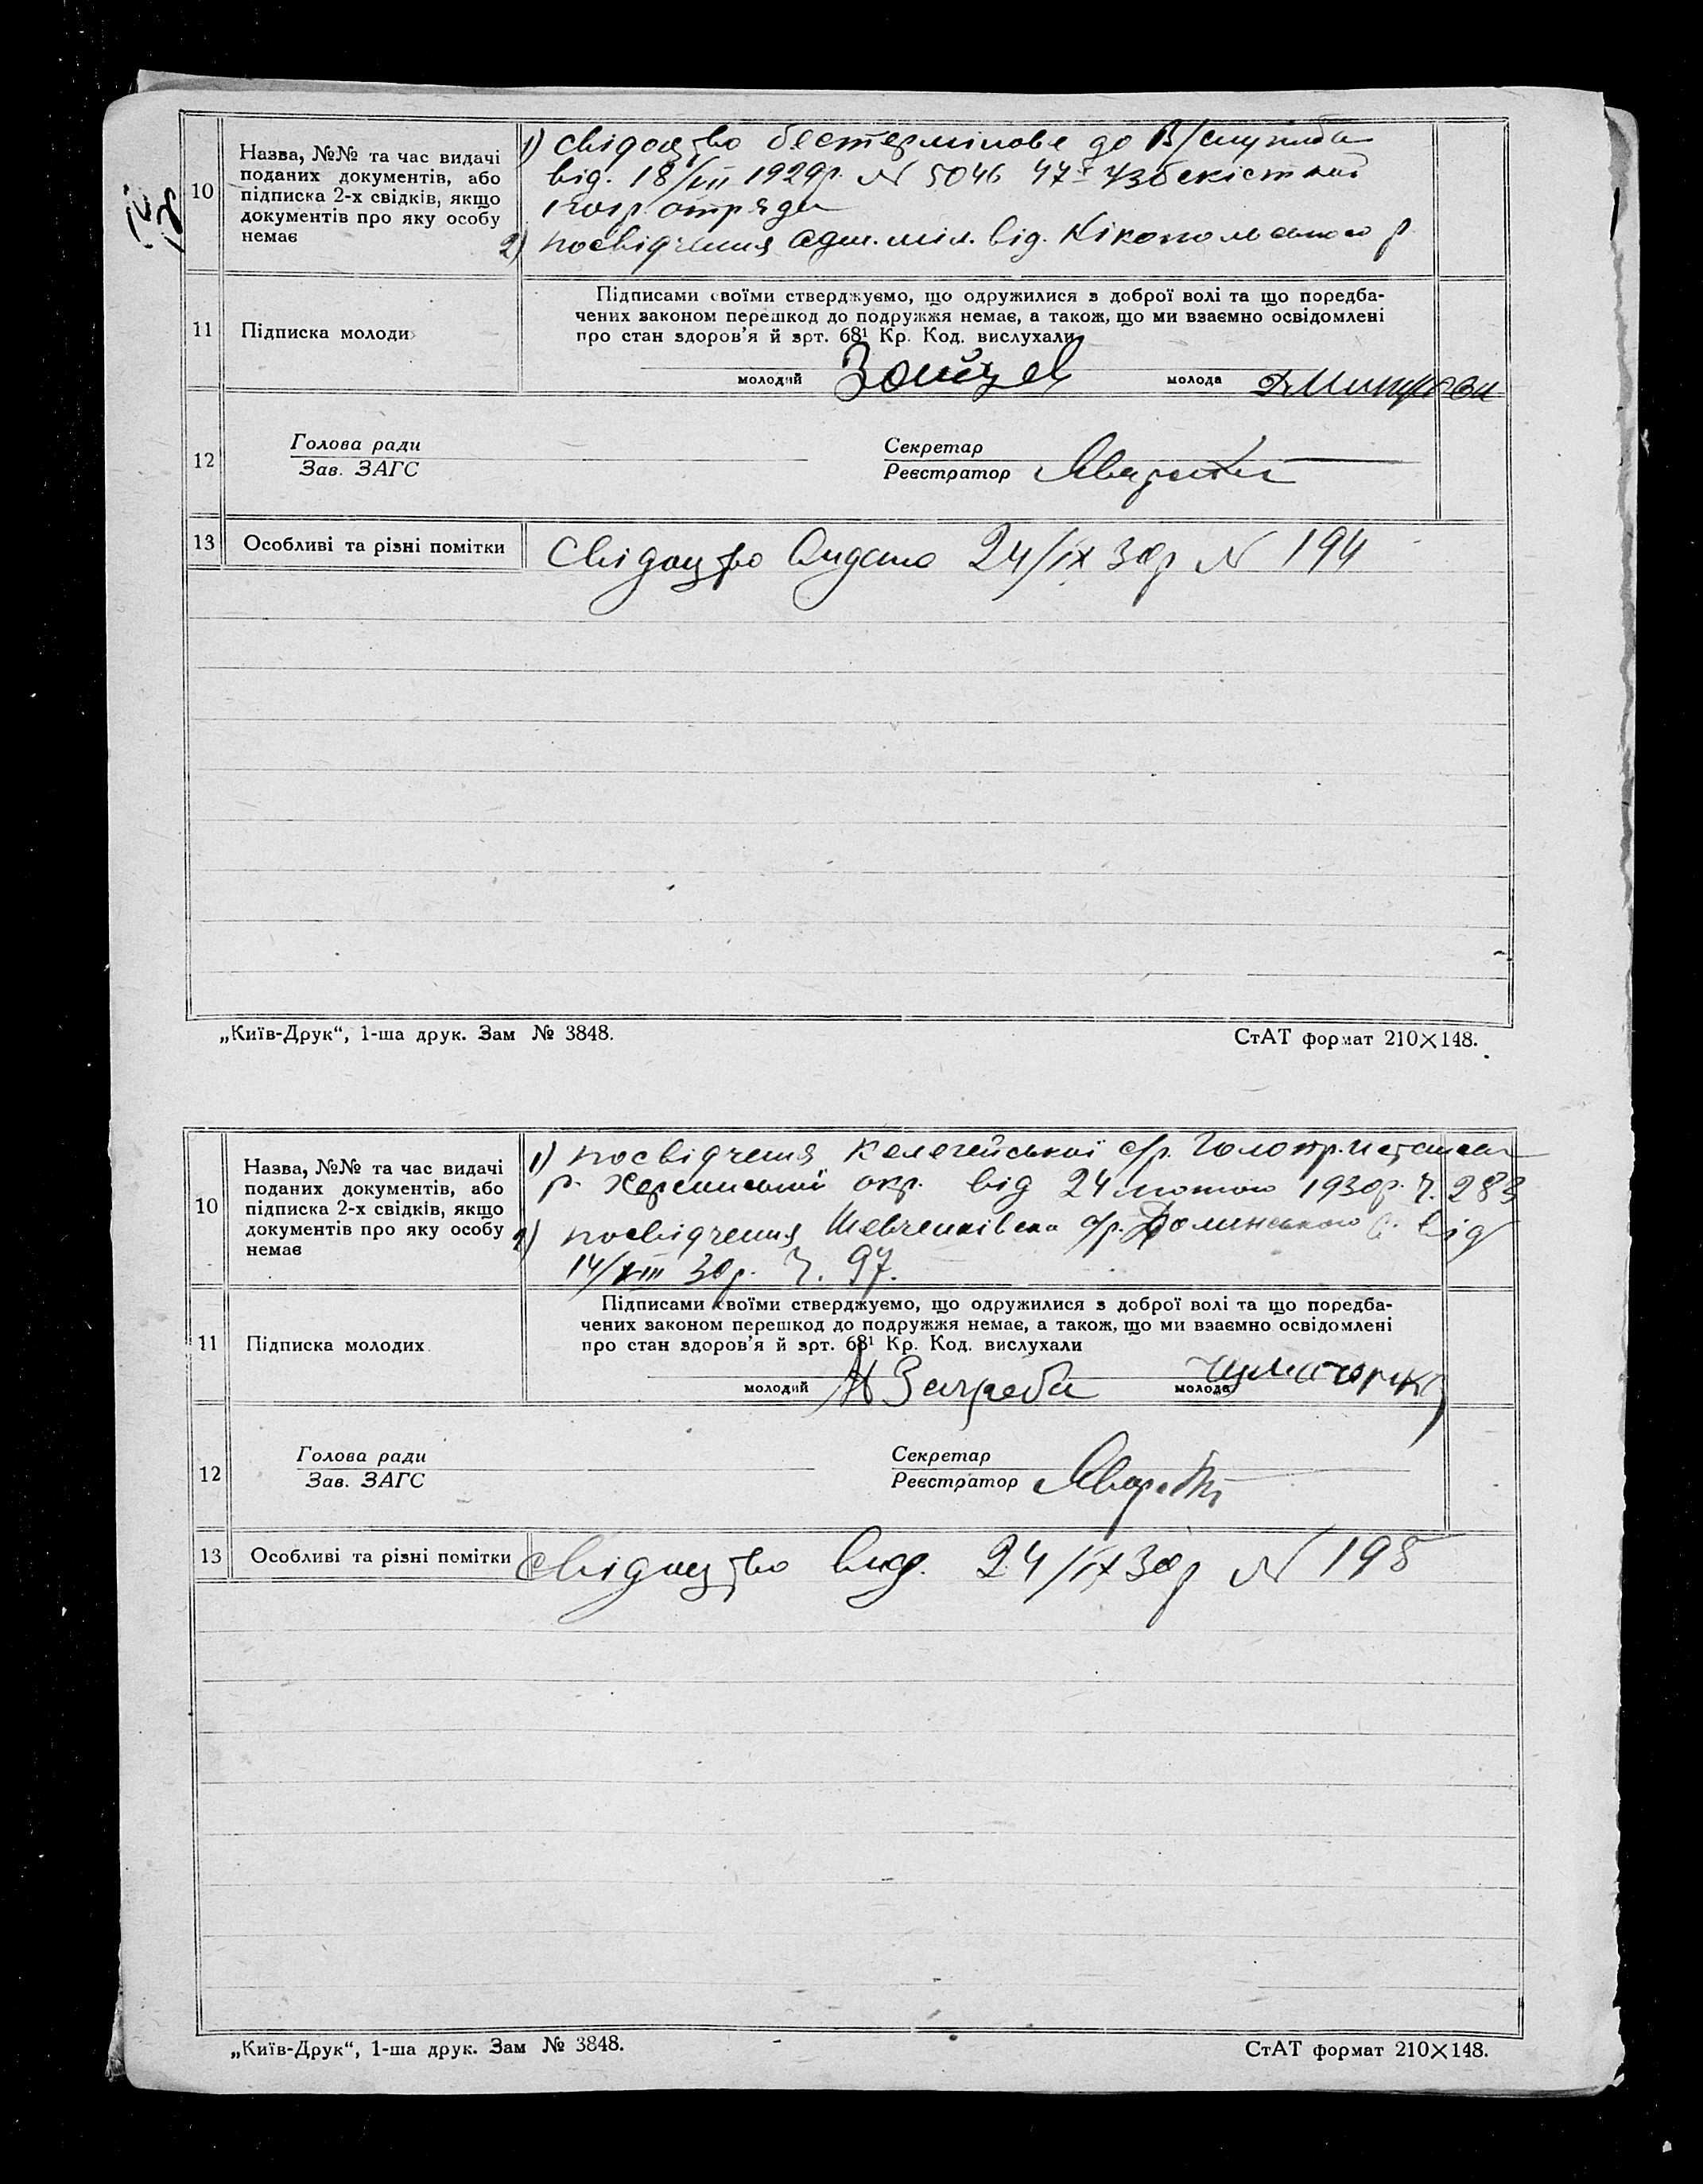 10
Назва, №№ та час видачі
поданих документів, або
підписка 2-х свідків, якщо
документів про яку особу
немає
1) Свідоцтво бестермінове до В/служби
від. 18/VIII 1929р. N 5046 47 Узбекіст
отряда
2) посвідчення Адм. міл. від. Нікопольського р
11
Підписка молоди
Підписами своїми стверджуємо, що одружилися з доброї волі та що поредба-
чених законом перешкод до подружжя немає, а також, що ми взаємно освідомлені
про стан здоров'я й зрт. 68¹ Кр. Код. вислухали
молодий Зайцев молода
12
Голова ради
Зав. ЗАГС
Секретар
Реєстратор
13
Особливі та різні помітки
Свідоцтво видано 24/IX 30р N 194
„Київ-Друк“, 1-ша друк. Зам № 3848.
СтАТ формат 210×148.
10
Назва, №№ та час видачі
поданих документів, або
підписка 2-х свідків, якщо
документів про яку особу
немає
1) посвідчення Келегейської с/р. Голопристансь
р. Херсонської окр. від 24 лютого 1930р. Ч. 283
2) посвідчення Шевченківська с/р. Долинського р. від
14/VIII 30р. Ч. 97.
11
Підписка молодих
Підписами своїми стверджуємо, що одружилися з доброї волі та що поредба-
чених законом перешкод до подружжя немає, а також, що ми взаємно освідомлені
про стан здоров'я й зрт. 68¹ Кр. Код. вислухали
молодий молода
12
Голова ради
Зав. ЗАГС
Секретар
Реєстратор
13
Особливі та різні помітки
Свідоцтво вид. 24/IX 30р N 195
„Київ-Друк“, 1-ша друк. Зам № 3848.
СтАТ формат 210×148.